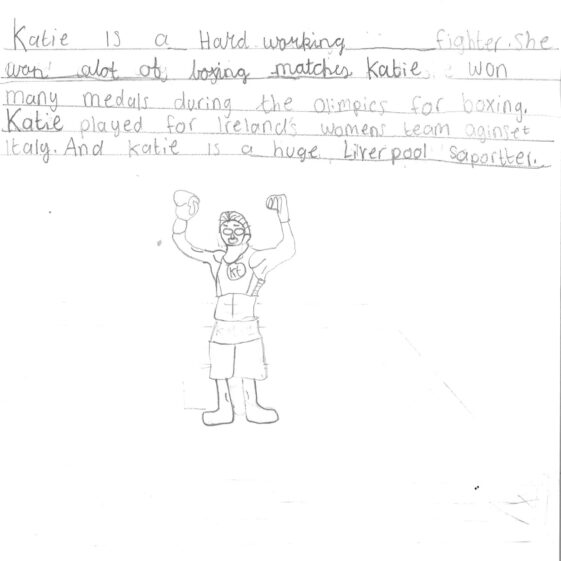 Katie is a Hard working fighter. She
won alot of boxing matches Katie won
many medals during the olimpics for boxing.
Katie played for Ireland's womens team aginset
Italy. And Katie is a huge Liverpool saportter.
KT